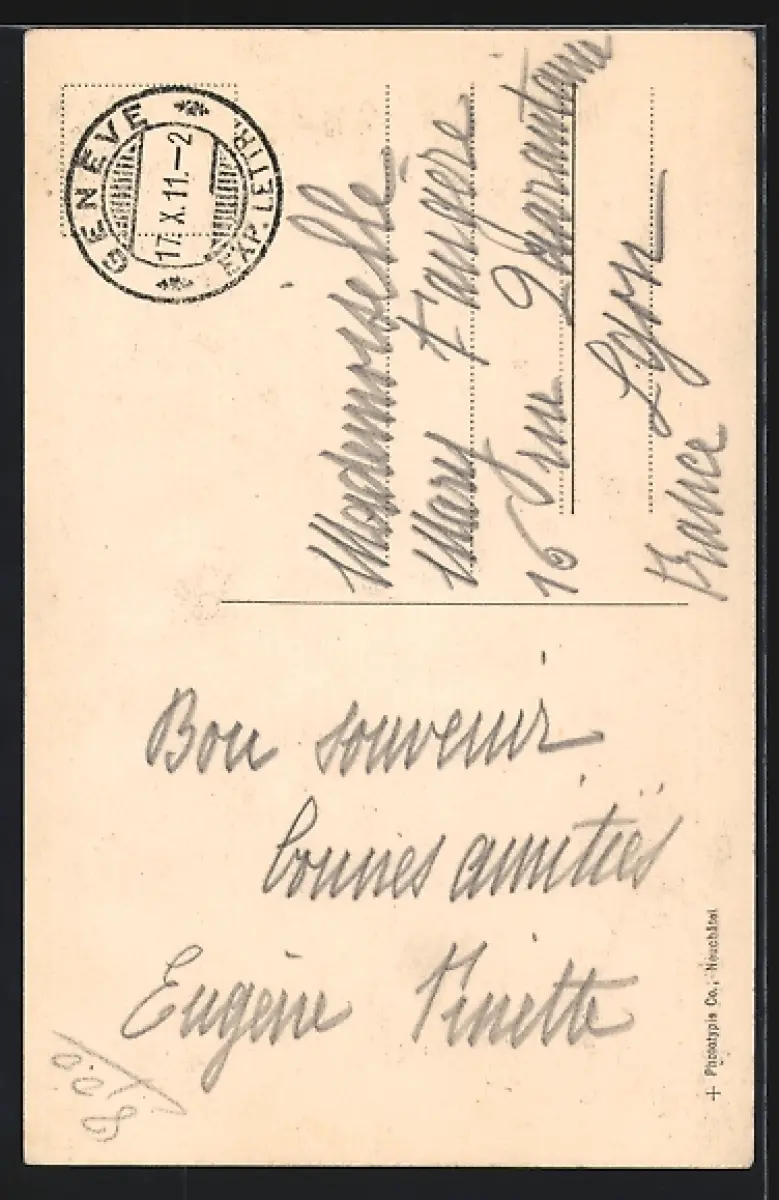 GENÈVE
17.X.11.-2
EXP. LETTR.
Mademoiselle
Mary Faugère
16 rue Quarantaine
Lyon
France
Bon souvenir
bonnes amitiés
Eugène Vinette
+ Phototypie Co., Neuchâtel